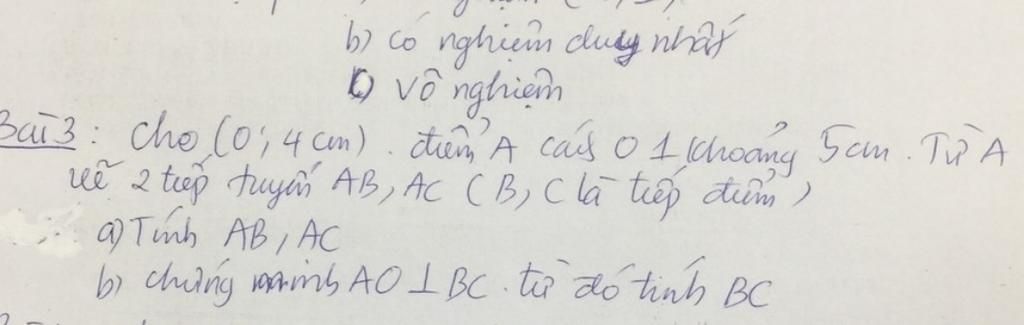 b) có nghiệm duy nhất
c) vô nghiệm
Bài 3: Cho (O; 4cm). điểm A cách O 1 khoảng 5cm. Từ A
vẽ 2 tiếp tuyến AB, AC (B, C là tiếp điểm)
a) Tính AB, AC
b) chứng minh AO ⊥ BC. từ đó tính BC